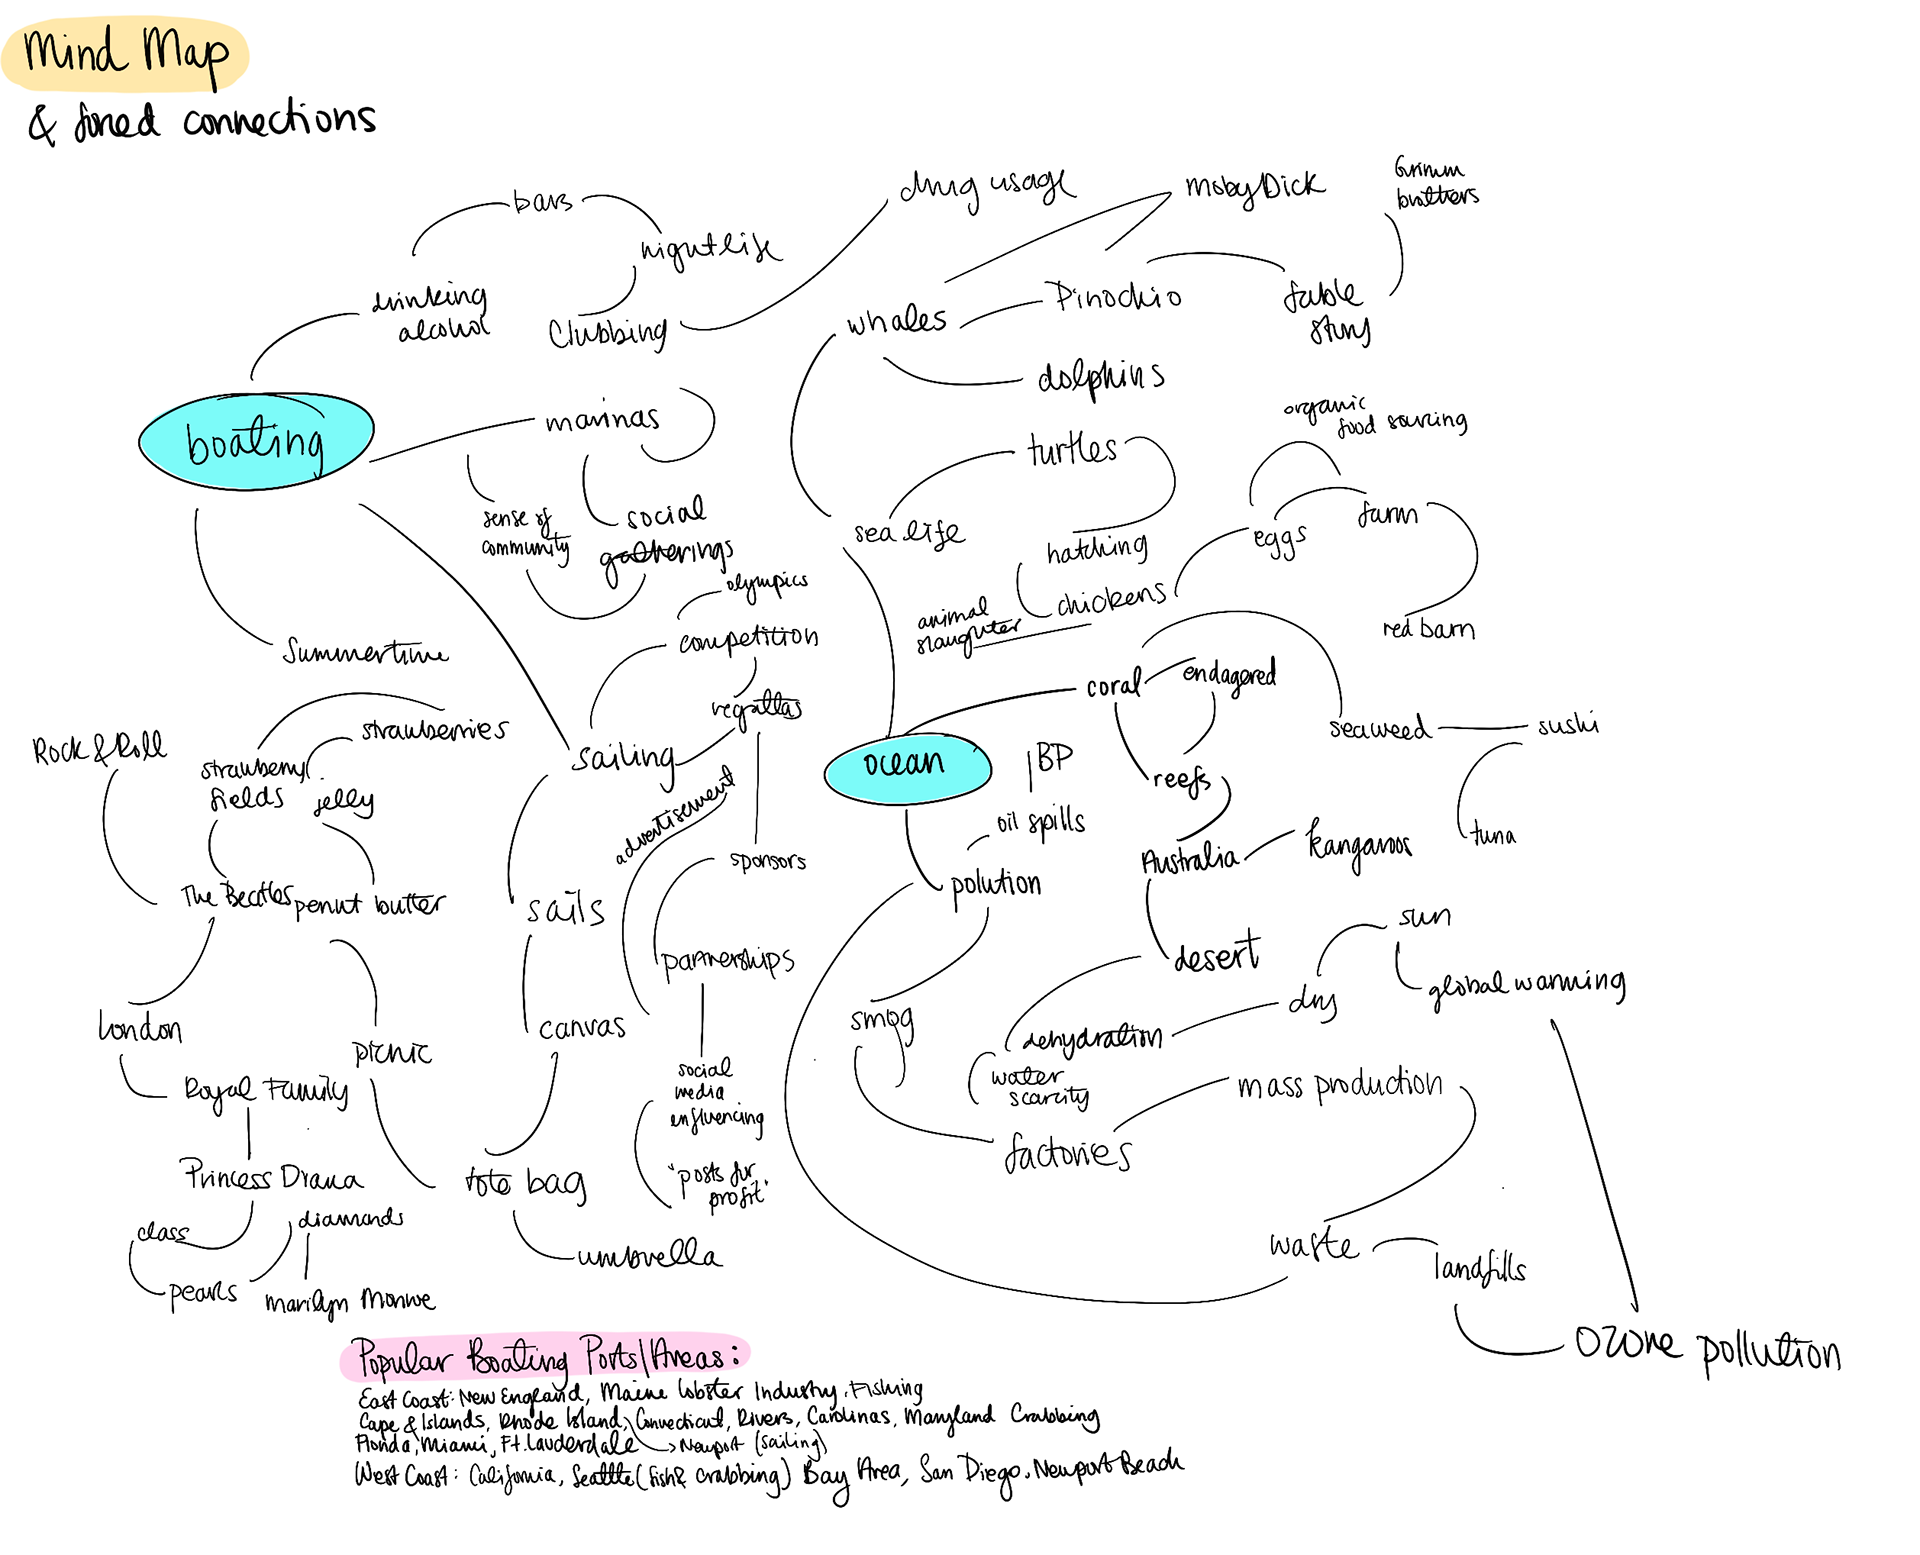 Mind Map
& forced connections
bars
nightlife
drinking
alcohol
Clubbing
drug usage
boating
marinas
sense of
community
social
gatherings
Summertime
olympics
competition
regattas
sailing
advertisement
sponsors
partnerships
social
media
enfluencing
"posts for
profit"
sails
canvas
tote bag
umbrella
strawberries
strawberry
fields
jelly
Rock & Roll
The Beatles
penut butter
picnic
London
Royal Family
Princess Diana
class
pearls
diamonds
marilyn Monroe
whales
Moby Dick
Pinochio
fable
story
Grimm
brothers
dolphins
sea life
turtles
hatching
chickens
animal
slaughter
eggs
organic
food sourcing
farm
red barn
ocean
coral
endagered
reefs
seaweed
sushi
tuna
Australia
kangaroos
desert
dehydration
water
scarcity
dry
sun
global warming
BP
oil spills
polution
smog
factories
mass production
waste
landfills
ozone pollution
Popular Boating Ports/Areas:
East Coast: New England, Maine Lobster Industry, Fishing
Cape & Islands, Rhode Island, Connecticut, Rivers, Carolinas, Maryland Crabbing
Florida, Miami, Ft. Lauderdale → Newport (sailing)
West Coast: California, Seattle (fish & crabbing) Bay Area, San Diego, Newport Beach